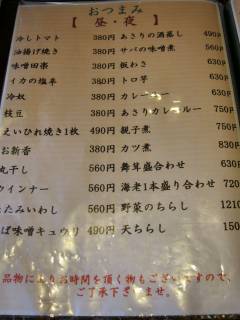 おつまみ
【 昼・夜 】
冷しトマト 380円 あさりの酒蒸し
油揚げ焼き 380円 サバの味噌煮 560円
味噌田楽 380円 板わさ 630円
イカの塩辛 380円 トロ芋 630円
冷奴 380円 カレールー 630円
枝豆 380円 あさりカレールー 750円
えいひれ焼き1枚 490円 親子煮
お新香 380円 カツ煮 830円
丸干し 560円 舞茸盛合わせ 630円
ウインナー 560円 海老1本盛り合わせ
たたみいわし 560円 野菜のちらし 1210
ば味噌キュウリ 490円 天ちらし
品物によりお時間を頂く物もございますので、
ご了承下さいませ。